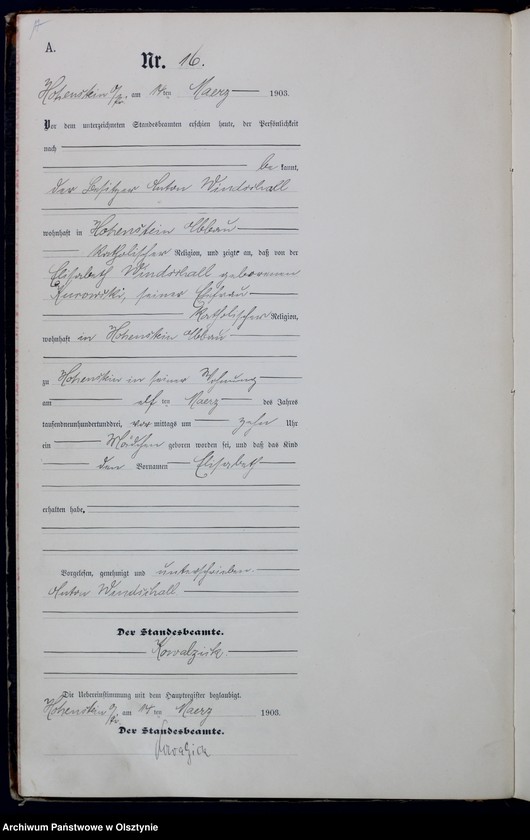 A.
Nr. 16.
Hohenstein O/Pr. am 14ten Maerz 1903.
Vor dem unterzeichneten Standesbeamten erschien heute, der Persönlichkeit
nach
be kannt,
der Besitzer Anton Windschall
wohnhaft in Hohenstein Abbau
katholischer Religion, und zeigte an, daß von der
Elisabeth Windschall geborenen
Kurowski, seiner Ehefrau
katholischer Religion,
wohnhaft in Hohenstein Abbau
zu Hohenstein in seiner Wohnung
am elf ten Maerz des Jahres
tausendneunhundertunddrei, vor mittags um zehn Uhr
ein Mädchen geboren worden sei, und daß das Kind
den Vornamen Elisabeth
erhalten habe.
Vorgelesen, genehmigt und unterschrieben.
Anton Windschall
Der Standesbeamte.
Kowalzick.
Die Uebereinstimmung mit dem Hauptregister beglaubigt.
Hohenstein O/Pr. am 14 ten Maerz 1903.
Der Standesbeamte.
Kowalzick
Archiwum Państwowe w Olsztynie